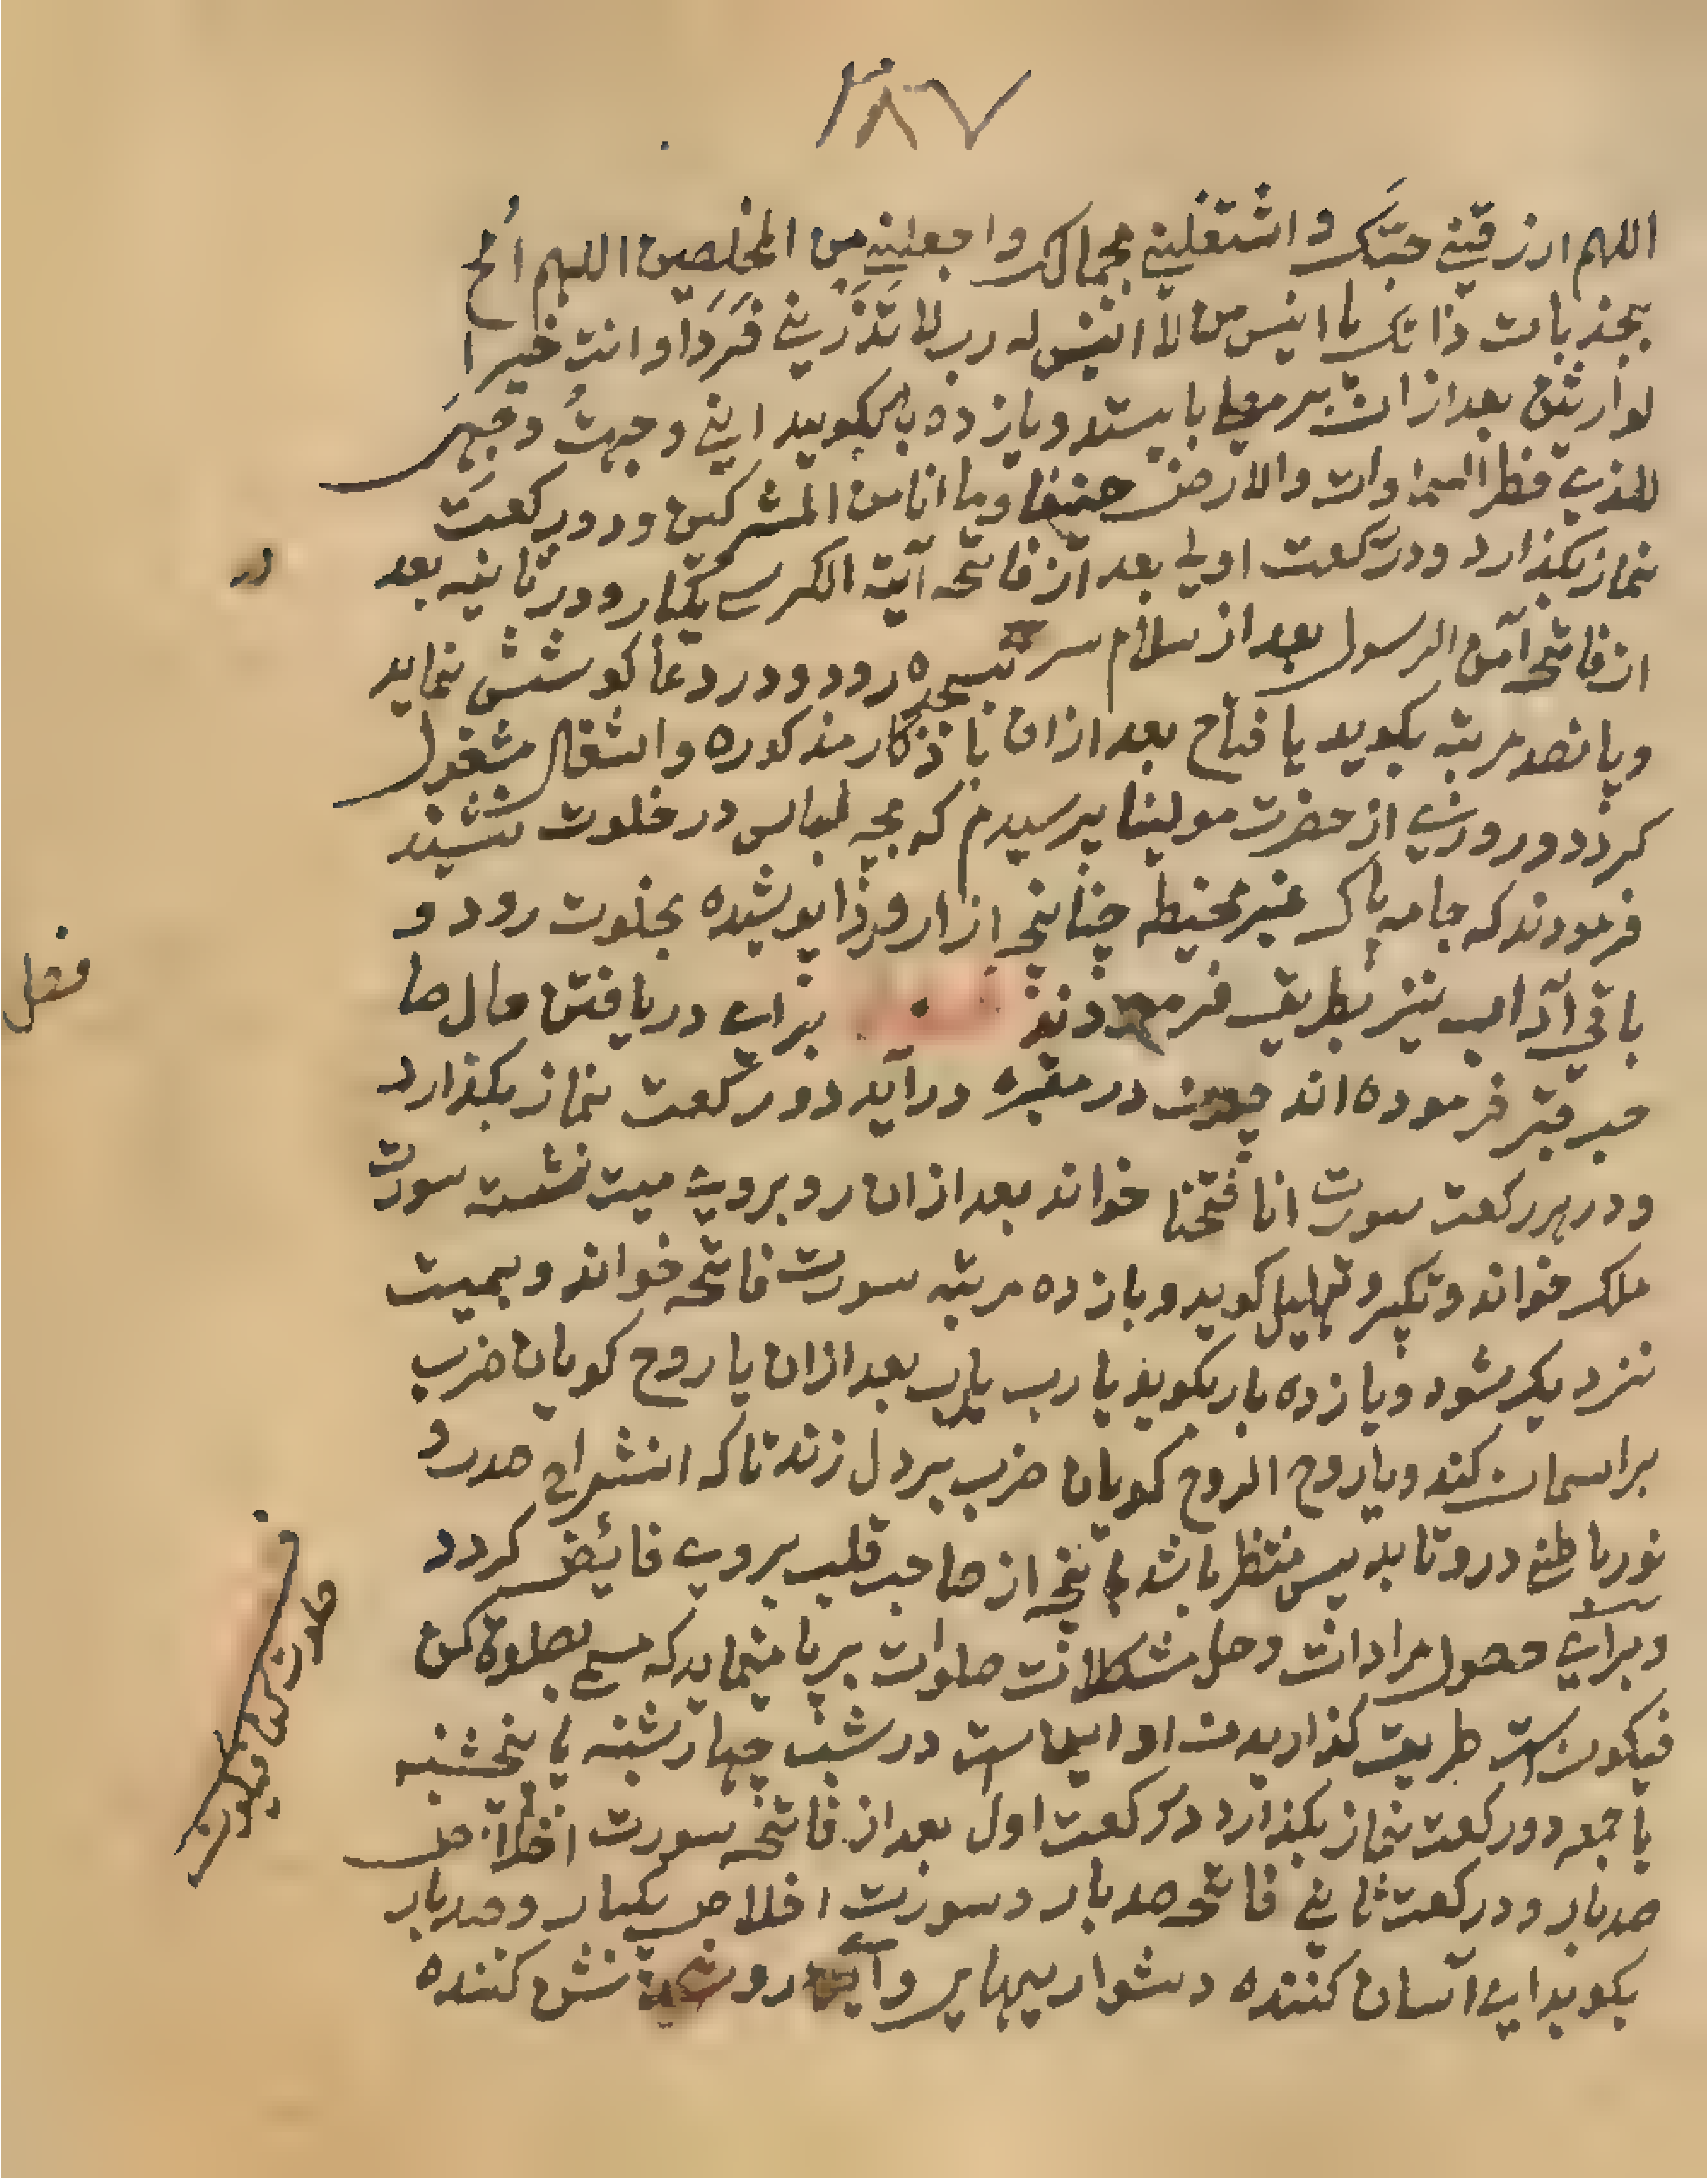 ۳۸۷
اللهم ارزقنی حبّک و اشتغلینی بجمالک واجعلینی من المخلصین اللهم امح
بجذبات ذاتک یا انیس من لا انیس له رب لا تذرنی فردا و انت خیر ا
لوارثین بعد ازان بر مصلا بایستد و یازده بار بکوید اینی وجهتُ وجهی
للذی فطر السماوات والارض حنیفا وما انا من المشرکین و دو رکعت
نماز بکذارد و در رکعت اولی بعد از فاتحه آیة الکرسی یکبار و در ثانیه بعد
در
از فاتحه آمن الرسول بعد از سلام سر بسجده رود و در دعا کوشش نماید
و پانصد مرتبه بکوید یا فتاح بعد ازان با ذکار مذکوره و اشغال مشغول
کردد و روزی از حضرت مولینا پرسیدم که بچه لباس در خلوت نشیند
فرمودند که جامه پاک غیر مخیطه چنانچه ازار و ردا پوشیده بخلوت رود و
باقی آداب نیز بطریق فرمودند برای دریافتن حال صا
فصل
حب قبر فرموده اند چون در مقبره درآید دو رکعت نماز بکذارد
و در هر رکعت سورت انا فتحنا خواند بعد ازان رو بروی میت نشسته سورت
ملک خواند و تکبیر و تهلیل کوید و یازده مرتبه سورت فاتحه خواند و بمیت
نزدیک شود و یازده بار بکوید یا رب یا رب بعد ازان یا روح کویان ضرب
بر اسمان کند و یا روح الروح کویان ضرب بر دل زند تا که انشراح صدر و
نور باطنی درو تابد پس منتظر باشد تا چه از صاحب قلب بروی فایض کردد
و برای حصول مرادات و حل مشکلات صلوات برپا مینماید که مسمی بصلوة کن
فیکون است طریق کذاریدن او اینست در شب چهارشنبه یا پنجشنبه
یا جمعه دو رکعت نماز بکذارد در رکعت اول بعد از فاتحه سورت اخلاص
صد بار و در رکعت ثانی فاتحه صد بار و سورت اخلاص یکبار و صد بار
بکوید ای آسان کننده دشواریها و ای روشن کننده
صلوت کن فیکون